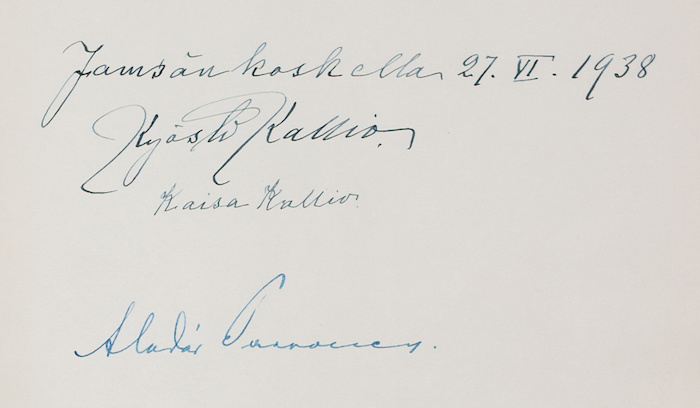 Jamsänkoskella 27. VI. 1938
Kyösti Kallio.
Kaisa Kallio.
Aladár Paasonen.